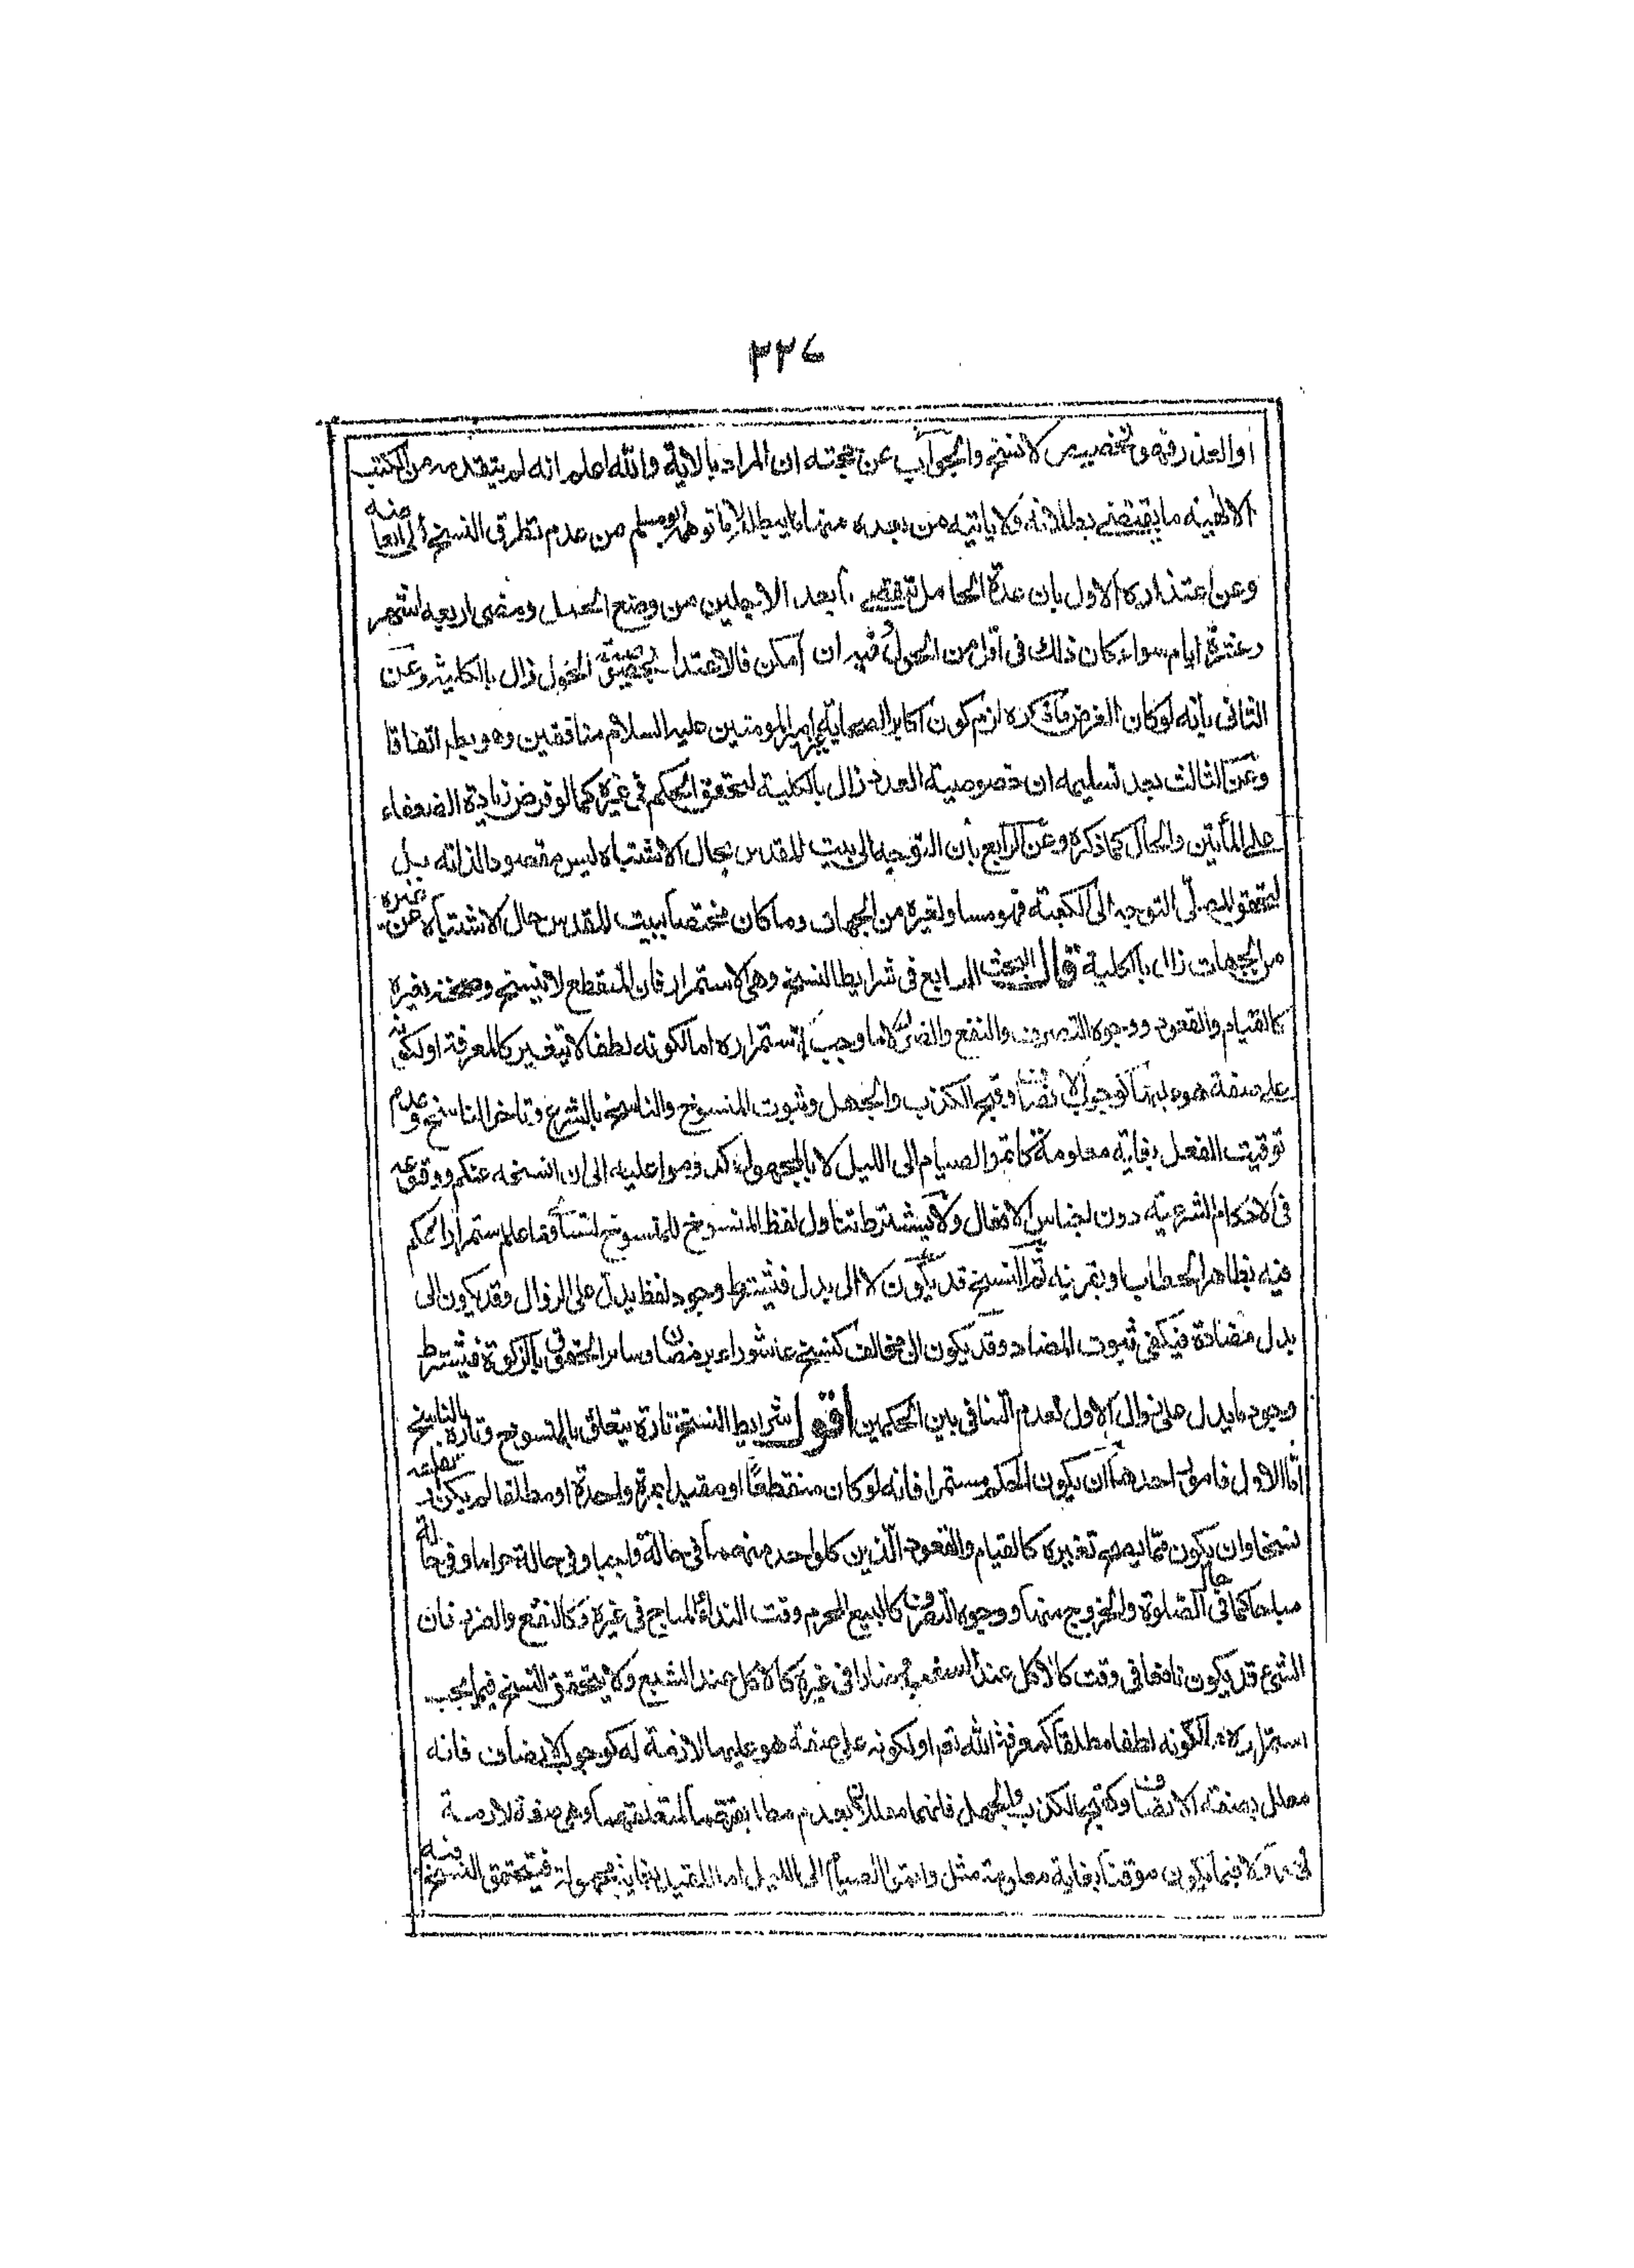 ٣٣٦
او العذر فهو تخصيص لا نسخ والجواب عن حجته ان المراد بالاية والله اعلم انه لم يتقدمه من الكتب
الالهية ما يقتضى بطلانه ولا ياتيه من بعده منها ما يبطله لا ما توهمه ابو مسلم من عدم تطرق النسخ الى ابعاضه
وعن اعتذاره الاول بان عدة الحامل تنقضى بابعد الاجلين من وضع الحمل ومضى اربعة اشهر
وعشرة ايام سواء كان ذلك فى اقل من الحول او فيه ان امكن فالاعتداد بخصوصية الحول زال بالكلية وعن
الثانى بانه لو كان الغرض ما ذكره لزم كون اكابر الصحابة غير امير المومنين عليه السلام منافقين وهو بط اتفاقا
وعن الثالث بعد تسليمه ان خصوصية العدد زال بالكلية لتحقق الحكم فى غيره كما لو فرض زيادة الضعفاء
على المأتين والحال كما ذكره وعن الرابع بان التوجه الى بيت المقدس بحال الاشتباه ليس مقصودا لذاته بل
ليتحقق للمصلى التوجه الى الكعبة فهو مساو لغيره من الجهات وما كان مختصا ببيت المقدس حال الاشتباه عن غيره
من الجهات زال بالكلية قال البحث الرابع فى شرايط النسخ وهى الاستمرار فان المنقطع لا ينسخ وصحة تغيره
كالقيام والقعود ووجوه التصرف والنفع والضرر لا ما وجب استمراره اما لكونه لطفا لا يتغير كالمعرفة او لكونه
على صفة هو عليها كوجوب الانصاف وقبح الكذب والجهل وثبوت المنسوخ والناسخ بالشرع وتاخر الناسخ وعدم
توقيت الفعل بغاية معلومة كاتموا الصيام الى الليل لا بالمجهول كدوموا عليه الى ان انسخه عنكم ووقوعه
فى الاحكام الشرعية دون اجناس الافعال ولا يشترط تناول لفظ المنسوخ للمنسوخ استمرار الحكم
فيه بظاهر الخطاب او بقرينه ثم النسخ قد يكون لا الى بدل فيشترط وجود لفظ يدل على الزوال وقد يكون الى
بدل مضادة فيكفى ثبوت المضاد وقد يكون الى مخالف كنسخ عاشوراء برمضان وساير الحقوق بالزكوة فيشترط
وجود ما يدل على زوال الاول لعدم التنافى بين الحكمين اقول شرايط النسخ تارة يتعلق بالمنسوخ وتارة بالناسخ
اما الاول فامور احدها ان يكون الحكم مستمرا فانه لو كان منقطعا او مقيدا بمرة واحدة او مطلقا لم يكن
نسخا وان يكون مما يصح تغييره كالقيام والقعود الذين كل واحد منهما فى حالة واجبا وفى حالة حراما وفى حالة
مباحا كما فى حال الصلوة والخروج منها ووجوه التصرف كالبيع المحرم وقت النداء المباح فى غيره وكالنفع والضرر فان
الشئ قد يكون نافعا فى وقت كالاكل عند ضارا فى غيره كالاكل عند الشبع ولا يتحقق النسخ فيما يجب
استمراره اما لكونه لطفا مطلقا كمعرفة الله تعم او لكونه على صفة هو عليها لازمة له كوجوب الانصاف فانه
معلل بصفة الانصاف وكقبح الكذب والجهل فانهما معللان بعدم مطابقتهما لمتعلقهما وهى صفة لازمة
ولا فيما يكون موقتا بغاية معلومة مثل واتموا الصيام الى الليل اما المقيد بغاية مجهولة فيتحقق النسخ فيه